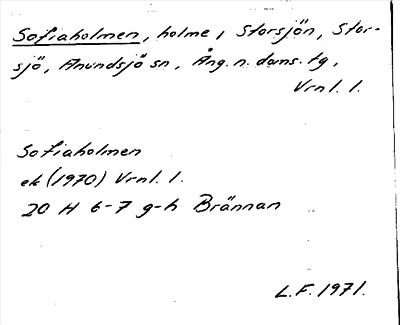 Sofiaholmen, holme i Storsjön, Stor-
sjö, Anundsjö sn, Ång. n. doms. tg,
Vrnl. 1.
Sofiaholmen
ek (1970) Vrnl. 1.
20 H 6-7 g-h Brännan
L.F. 1971.